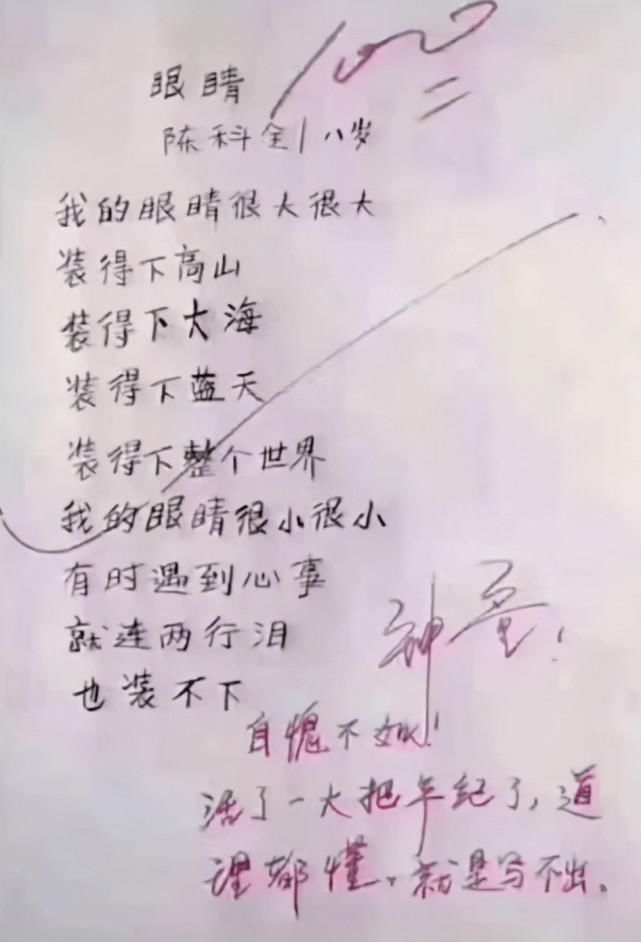 100
眼睛
陈科全 八岁
我的眼睛很大很大
装得下高山
装得下大海
装得下蓝天
装得下整个世界
我的眼睛很小很小
有时遇到心事
就连两行泪
也装不下
神童!
自愧不如!
活了一大把年纪了,道
理都懂,就是写不出。